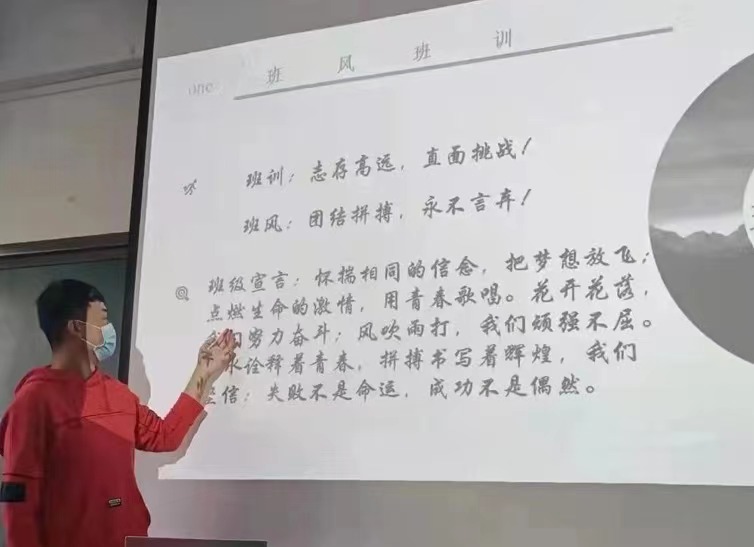 one 班风班训
班训：志存高远，直面挑战！
班风：团结拼搏，永不言弃！
班级宣言：怀揣相同的信念，把梦想放飞；
点燃生命的激情，用青春歌唱。花开花落，
努力奋斗；风吹雨打，我们顽强不屈。
水诠释着青春，拼搏书写着辉煌，我们
信：失败不是命运，成功不是偶然。